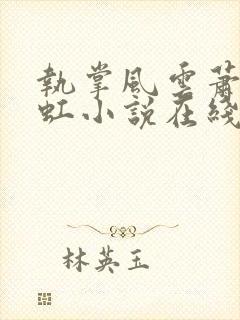 執掌風雲蕭
虹小說在綫
林英玉